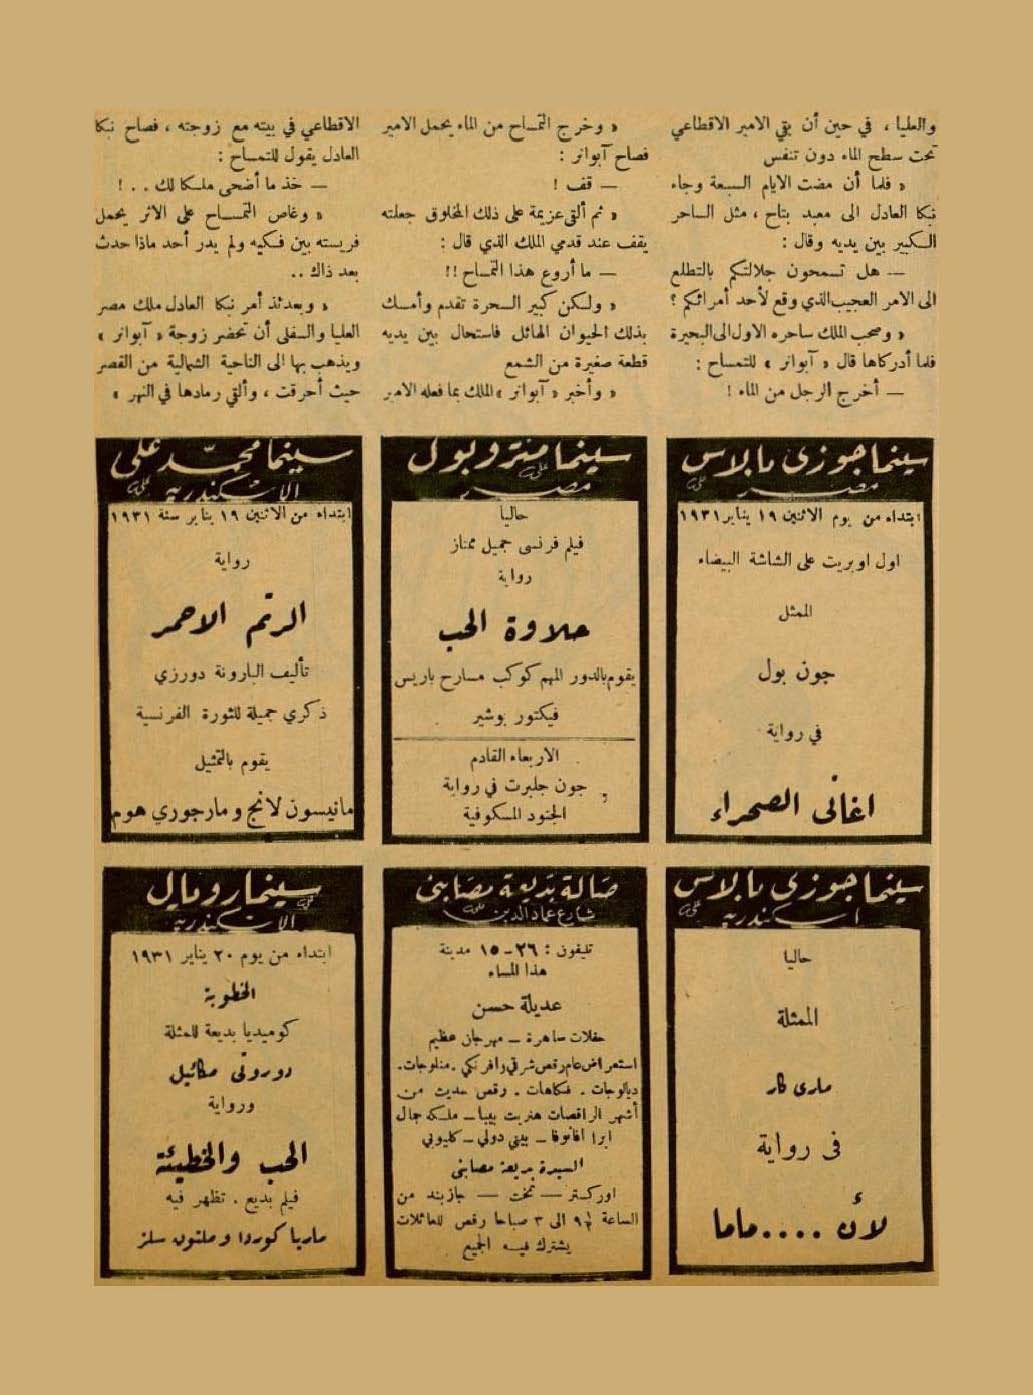 والعليا ، في حين أن بقي الامير الاقطاعي
تحت سطح الماء دون تنفس
« فلما أن مضت الايام السبعة وجاء
نبكا العادل الى معبد بتاح ، مثل الساحر
الكبير بين يديه وقال :
— هل تسمحون جلالتكم بالتطلع
الى الامر العجيب الذي وقع لأحد أمرائكم ؟
« وصحب الملك ساحره الاول الى البحيرة
فلما أدركاها قال « آبوانر » للتمساح :
— أخرج الرجل من الماء !
« وخرج التمساح من الماء يحمل الامير
فصاح آبوانر :
— قف !
« ثم ألقى عزيمة على ذلك المخلوق جعلته
يقف عند قدمي الملك الذي قال :
— ما أروع هذا التمساح !!
« ولكن كبير السحرة تقدم وأمسك
بذلك الحيوان الهائل فاستحال بين يديه
قطعة صغيرة من الشمع
« وأخبر « آبوانر » الملك بما فعله الامير
الاقطاعي في بيته مع زوجته ، فصاح نبكا
العادل يقول للتمساح :
— خذ ما أضحى ملكا لك . . !
« وغاص التمساح على الاثر يحمل
فريسته بين فكيه ولم يدر أحد ماذا حدث
بعد ذاك ..
« وبعدئذ أمر نبكا العادل ملك مصر
العليا والسفلى أن تحضر زوجة « آبوانر »
ويذهب بها الى الناحية الشمالية من القصر
حيث أحرقت ، وألقي رمادها في النهر »
سينما جوزى بالاس
مصر
ابتداء من يوم الاثنين ١٩ يناير ١٩٣١
اول اوبريت على الشاشة البيضاء
الممثل
جون بول
في رواية
اغانى الصحراء
سينما متروبول
مصر
حاليا
فيلم فرنسى جميل ممتاز
رواية
حلاوة الحب
يقوم بالدور المهم كوكب مسارح باريس
فيكتور بوشير
الاربعاء القادم
جون جلبرت في رواية
الجنود المسكوفية
سينما محمد على
الاسكندرية
ابتداء من الاثنين ١٩ يناير سنة ١٩٣١
رواية
الرتم الاحمر
تأليف البارونة دورزي
ذكري جميلة للثورة الفرنسية
يقوم بالتمثيل
مانيسون لانج ومارجوري هوم
سينما جوزى بالاس
اسكندرية
حاليا
الممثلة
مارى كار
فى رواية
لأن ....ماما
صالة بديعة مصابنى
شارع عماد الدين
تليفون : ٢٦–١٥ مدينة
هذا المساء
عديلة حسن
حفلات ساهرة — مهرجان عظيم
استعراض عام رقص شرقي وافرنكي . منلوجات .
ديالوجات . فكاهات . رقص حديث من
أشهر الراقصات هنريت بيبا — ملكه جمال
ايرا افانوفا — بيني دولي — كليوبي
السيدة بديعة مصابنى
اوركستر — تخت — جازبند من
الساعة ٩½ الى ٣ صباحا رقص للعائلات
يشترك فيه الجميع
سينما رويال
الاسكندرية
ابتداء من يوم ٢٠ يناير ١٩٣١
الخطوبة
كوميديا بديعة للممثلة
دوروتى مكائيل
ورواية
الحب والخطيئة
فيلم بديع . تظهر فيه
ماريا كوردا وملتون سلز